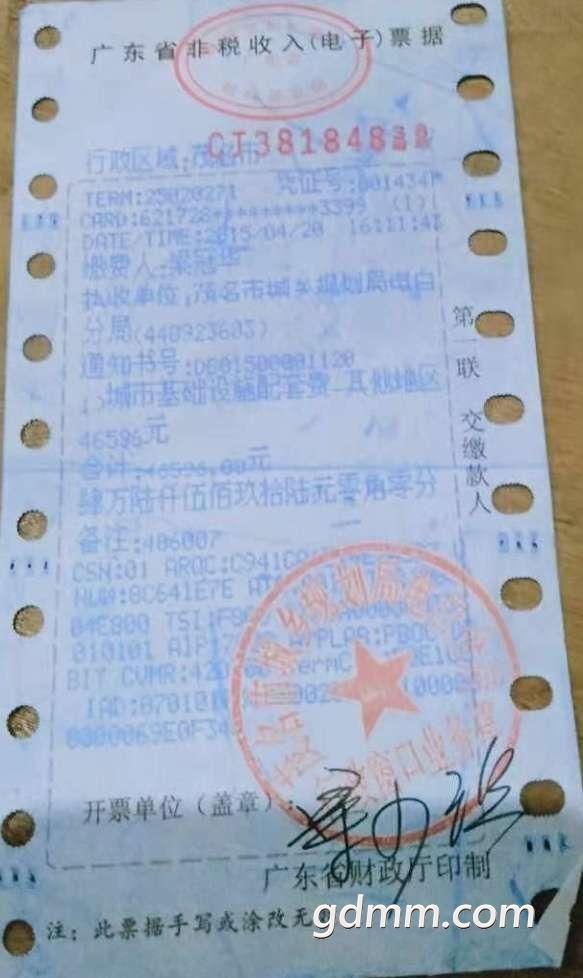 广东省非税收入(电子)票据
CJ381848
行政区域:茂名市
TERM:25020271 凭证号:001434
CARD:621728*********3399 (I)
DATE/TIME:2015/04/20 16:21:4
缴费人:梁冠华
执收单位:茂名市城乡规划局电白
分局(440923603)
通知书号:D601500001120
城市基础设施配套费-其他地区
46596元
合计:46596.00元
肆万陆仟伍佰玖拾陆元零角零分
备注:406007
CSN:01 ARQC:C941C
NUM:8C641E7E
04E800 TSI:F8
010101 AIP:
BIT CVMR:420
IAD:07010
0000069E0F34
第一联 交缴款人
城乡规划局
窗口业务章
开票单位(盖章):
广东省财政厅印制
注:此票据手写或涂改无
gdmm.com